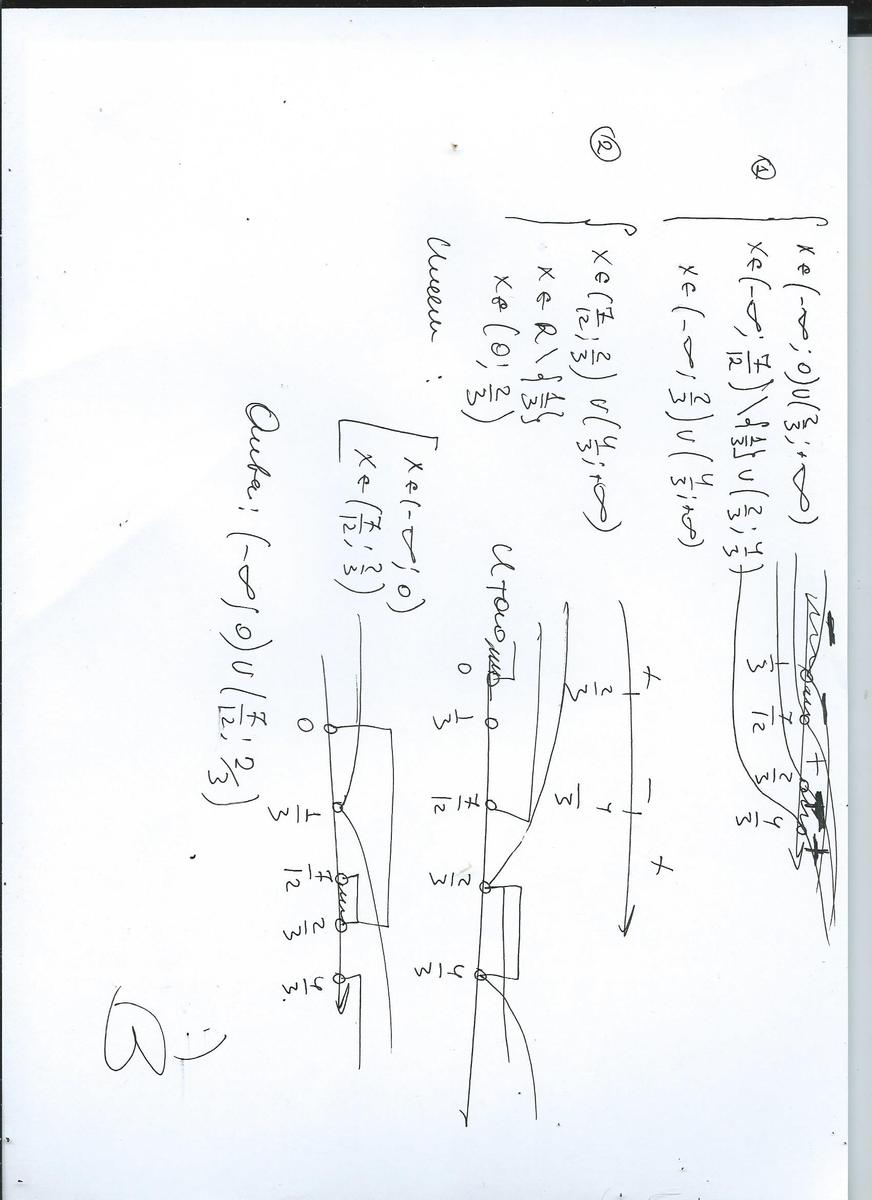 ① { x ∈ (-∞; 0) ∪ (2/3; +∞)
x ∈ (-∞; 7/12) \ {1/3} ∪ (2/3; 4/3)
x ∈ (-∞; 2/3) ∪ (4/3; +∞)
- - + - +
1/3 7/12 2/3 4/3
② { x ∈ (7/12; 2/3) ∪ (4/3; +∞)
x ∈ R \ {1/3}
x ∈ (0; 2/3)
+ - +
2/3 4/3
Итого
0 1/3 7/12 2/3 4/3
Имеем:
[ x ∈ (-∞; 0)
x ∈ (7/12; 2/3)
0 1/3 7/12 2/3 4/3
Ответ: (-∞; 0) ∪ (7/12; 2/3)
:)